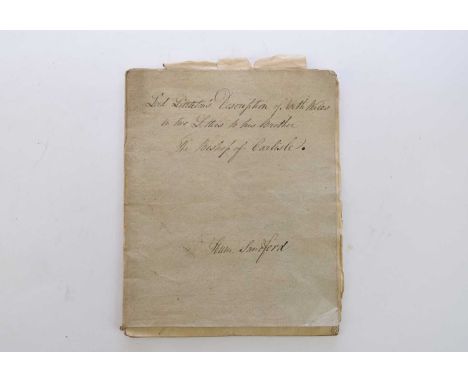 Lord Littleton's Description of North Wales
in two Letters to his Brother
The Bishop of Carlisle.
Sandford